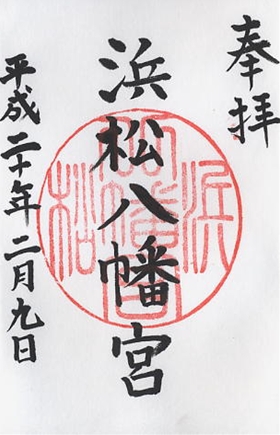 奉拝
浜松八幡宮
平成二十年二月九日
浜松八幡宮